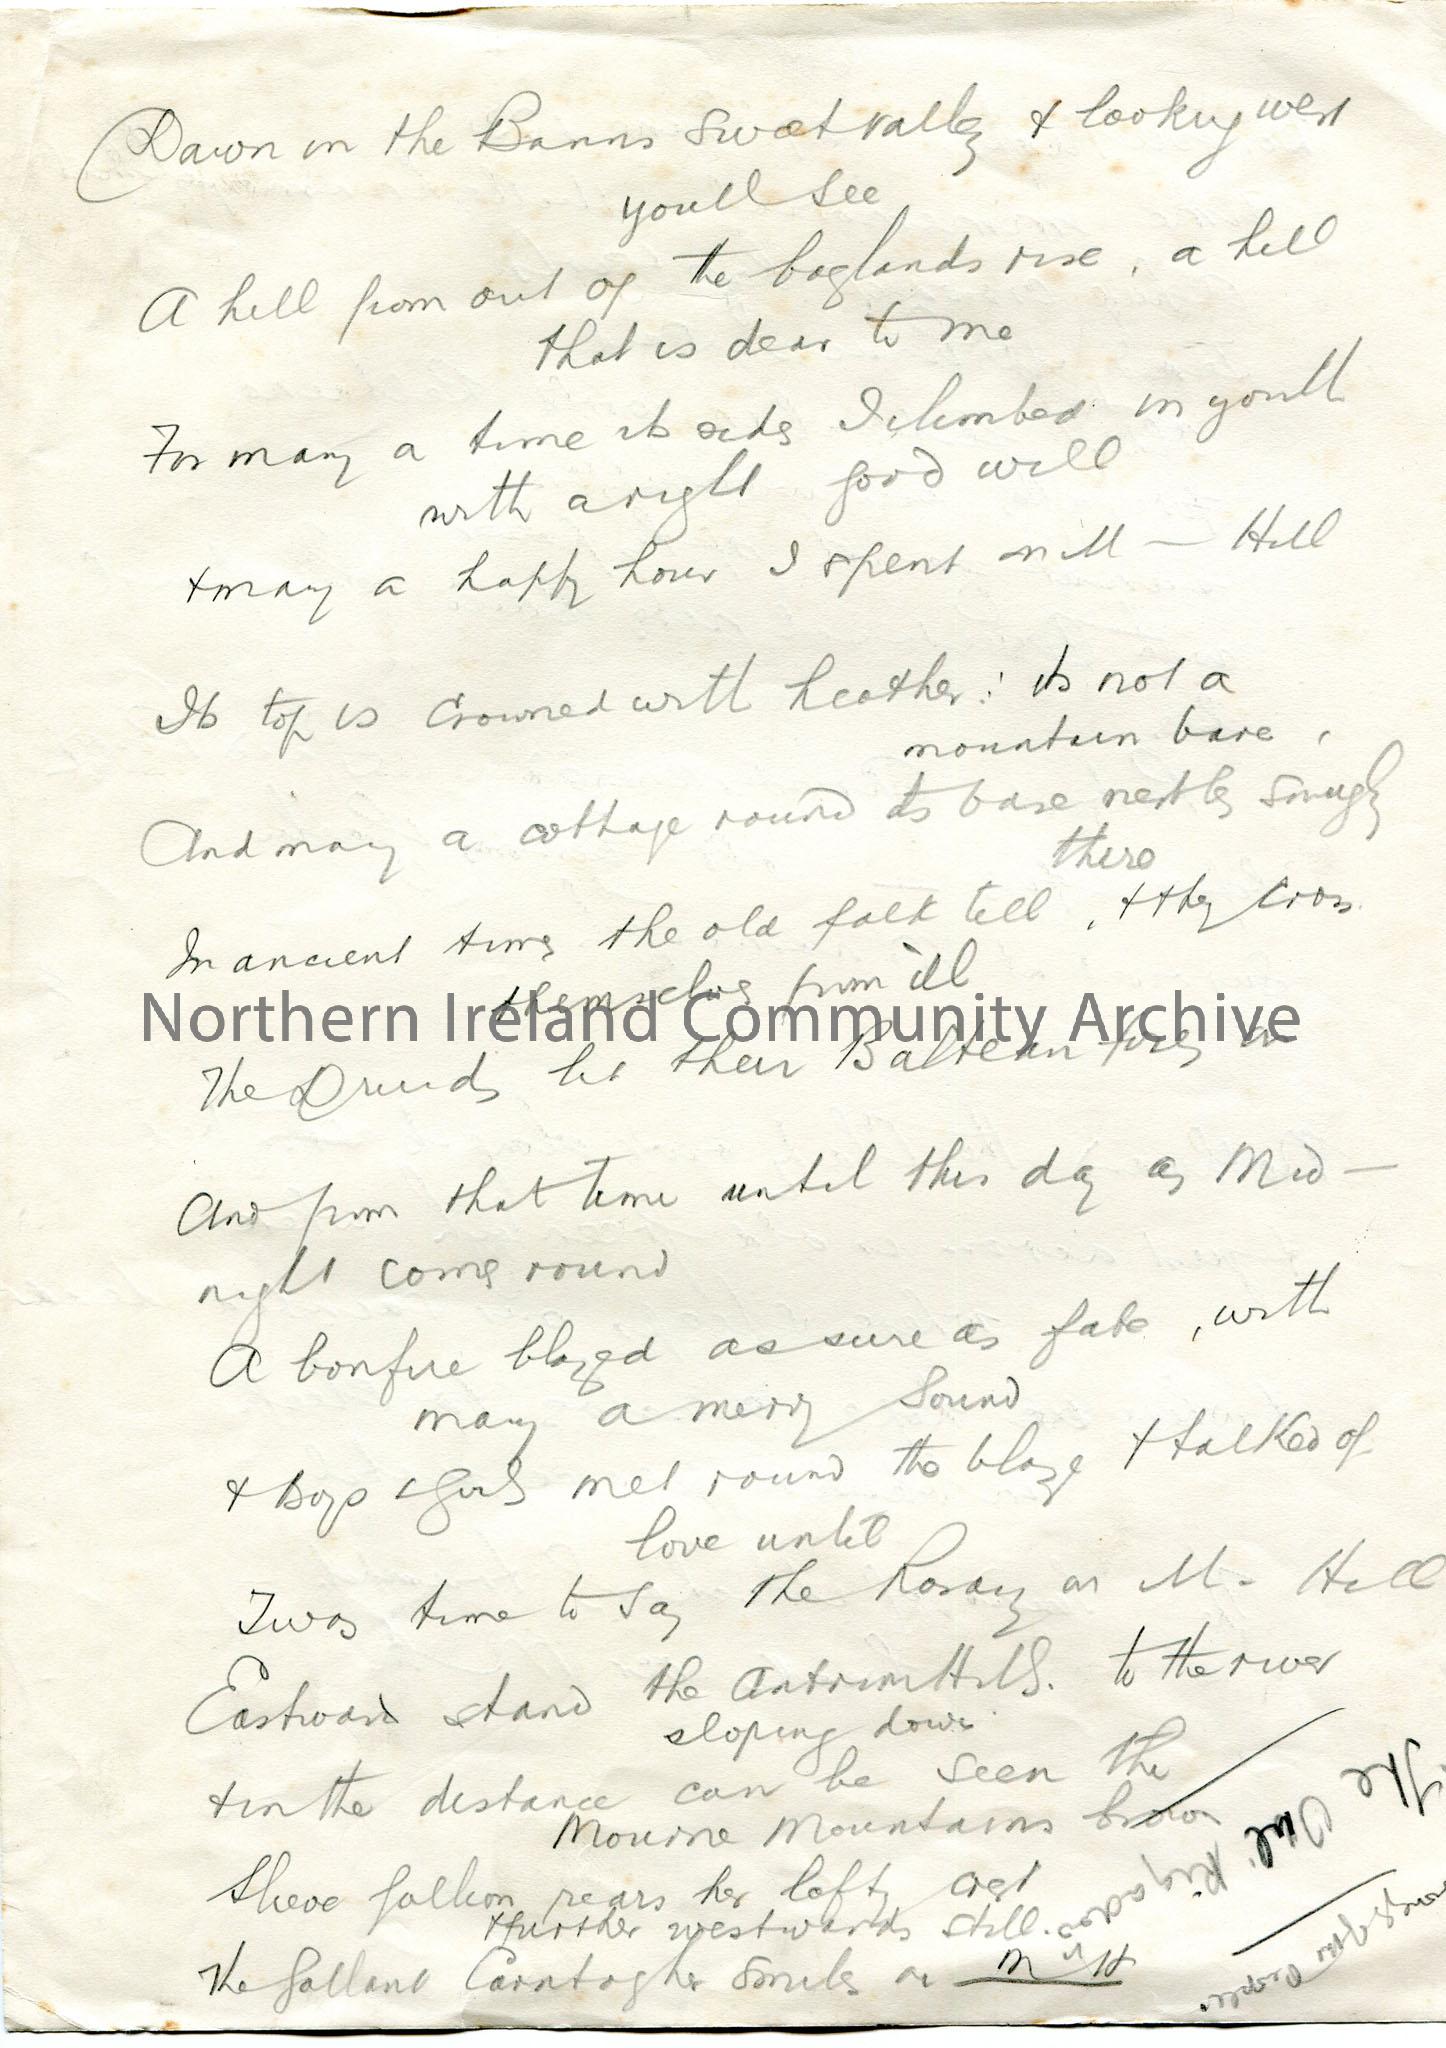 Dawn in the Banns sweet valley & looking west
youll see
A hill from out of the boglands rise, a hill
that is dear to me
For many a time its sides I climbed in youth
with a right good will
& many a happy hour I spent on M — Hill
Its top is crowned with heather: its not a
mountain bare,
And many a cottage round its base nestles snugly
there
In ancient times the old folk tell, & they cross
themselves from ill
The Druids lit their Baltean fires on
And from that time until this day as Mid—
night comes round
A bonfire blazed as sure as fate, with
many a merry sound
& boys & girls met round the blaze & talked of
love until
Twas time to say the Rosary on M - Hill
Eastward stand the Antrim Hills. to the river
sloping down
& in the distance can be seen the
Mourne Mountains brown
Slieve Gallion rears her lofty crest
& further westwards still.
The Gallant Carntogher smiles on M " H
The
Northern Ireland Community Archive